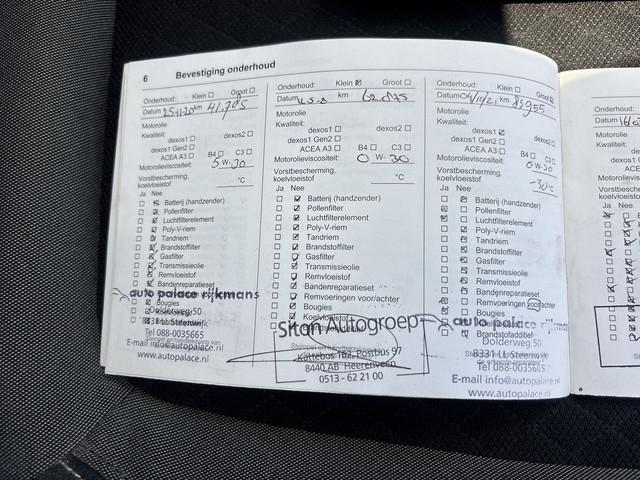 6 Bevestiging onderhoud
Onderhoud: Klein Groot
Datum 25-11-20 km 41.785
Motorolie
Kwaliteit:
dexos1 dexos2
dexos1 Gen2
ACEA A3 B4 C3
Motorolieviscositeit: 5 W-30
Vorstbescherming, koelvloeistof °C
Ja Nee
Batterij (handzender)
Pollenfilter
Luchtfilterelement
Poly-V-riem
Tandriem
Brandstoffilter
Gasfilter
Transmissieolie
Remvloeistof
Bandenreparatieset
auto palace rijkmans
Bougies
Dolderweg 50
8331 LL Steenwijk
Tel 088-0035665
E-mail info@autopalace.nl
www.autopalace.nl
Onderhoud: Klein Groot
Datum km
Motorolie
Kwaliteit:
dexos1 dexos2
dexos1 Gen2
ACEA A3 B4 C3
Motorolieviscositeit: 0 W-30
Vorstbescherming, koelvloeistof °C
Ja Nee
Batterij (handzender)
Pollenfilter
Luchtfilterelement
Poly-V-riem
Tandriem
Brandstoffilter
Gasfilter
Transmissieolie
Remvloeistof
Bandenreparatieset
Remvoeringen voor/achter
Bougies
Koelvloeistof
Siton Autogroep
Kattebos 162, Postbus 97
8440 AB Heerenveen
0513 - 62 21 00
Onderhoud: Klein Groot
Datum km 83955
Motorolie
Kwaliteit:
dexos1 dexos2
dexos1 Gen2
ACEA A3 B4 C3
Motorolieviscositeit: 0 W-30
Vorstbescherming, koelvloeistof -30°C
Ja Nee
Batterij (handzender)
Pollenfilter
Luchtfilterelement
Poly-V-riem
Tandriem
Brandstoffilter
Gasfilter
Transmissieolie
Remvloeistof
Bandenreparatieset
Remvoeringen voor/achter
Bougies
auto palace
Brandstofadditief
Dolderweg 50
8331 LL Steenwijk
Tel 088-0035665
E-mail info@autopalace.nl
www.autopalace.nl
Onderhoud:
Datum
Motorolie
Kwaliteit:
Motorolieviscositeit
Vorstbescherming
koelvloeistof
Ja Nee